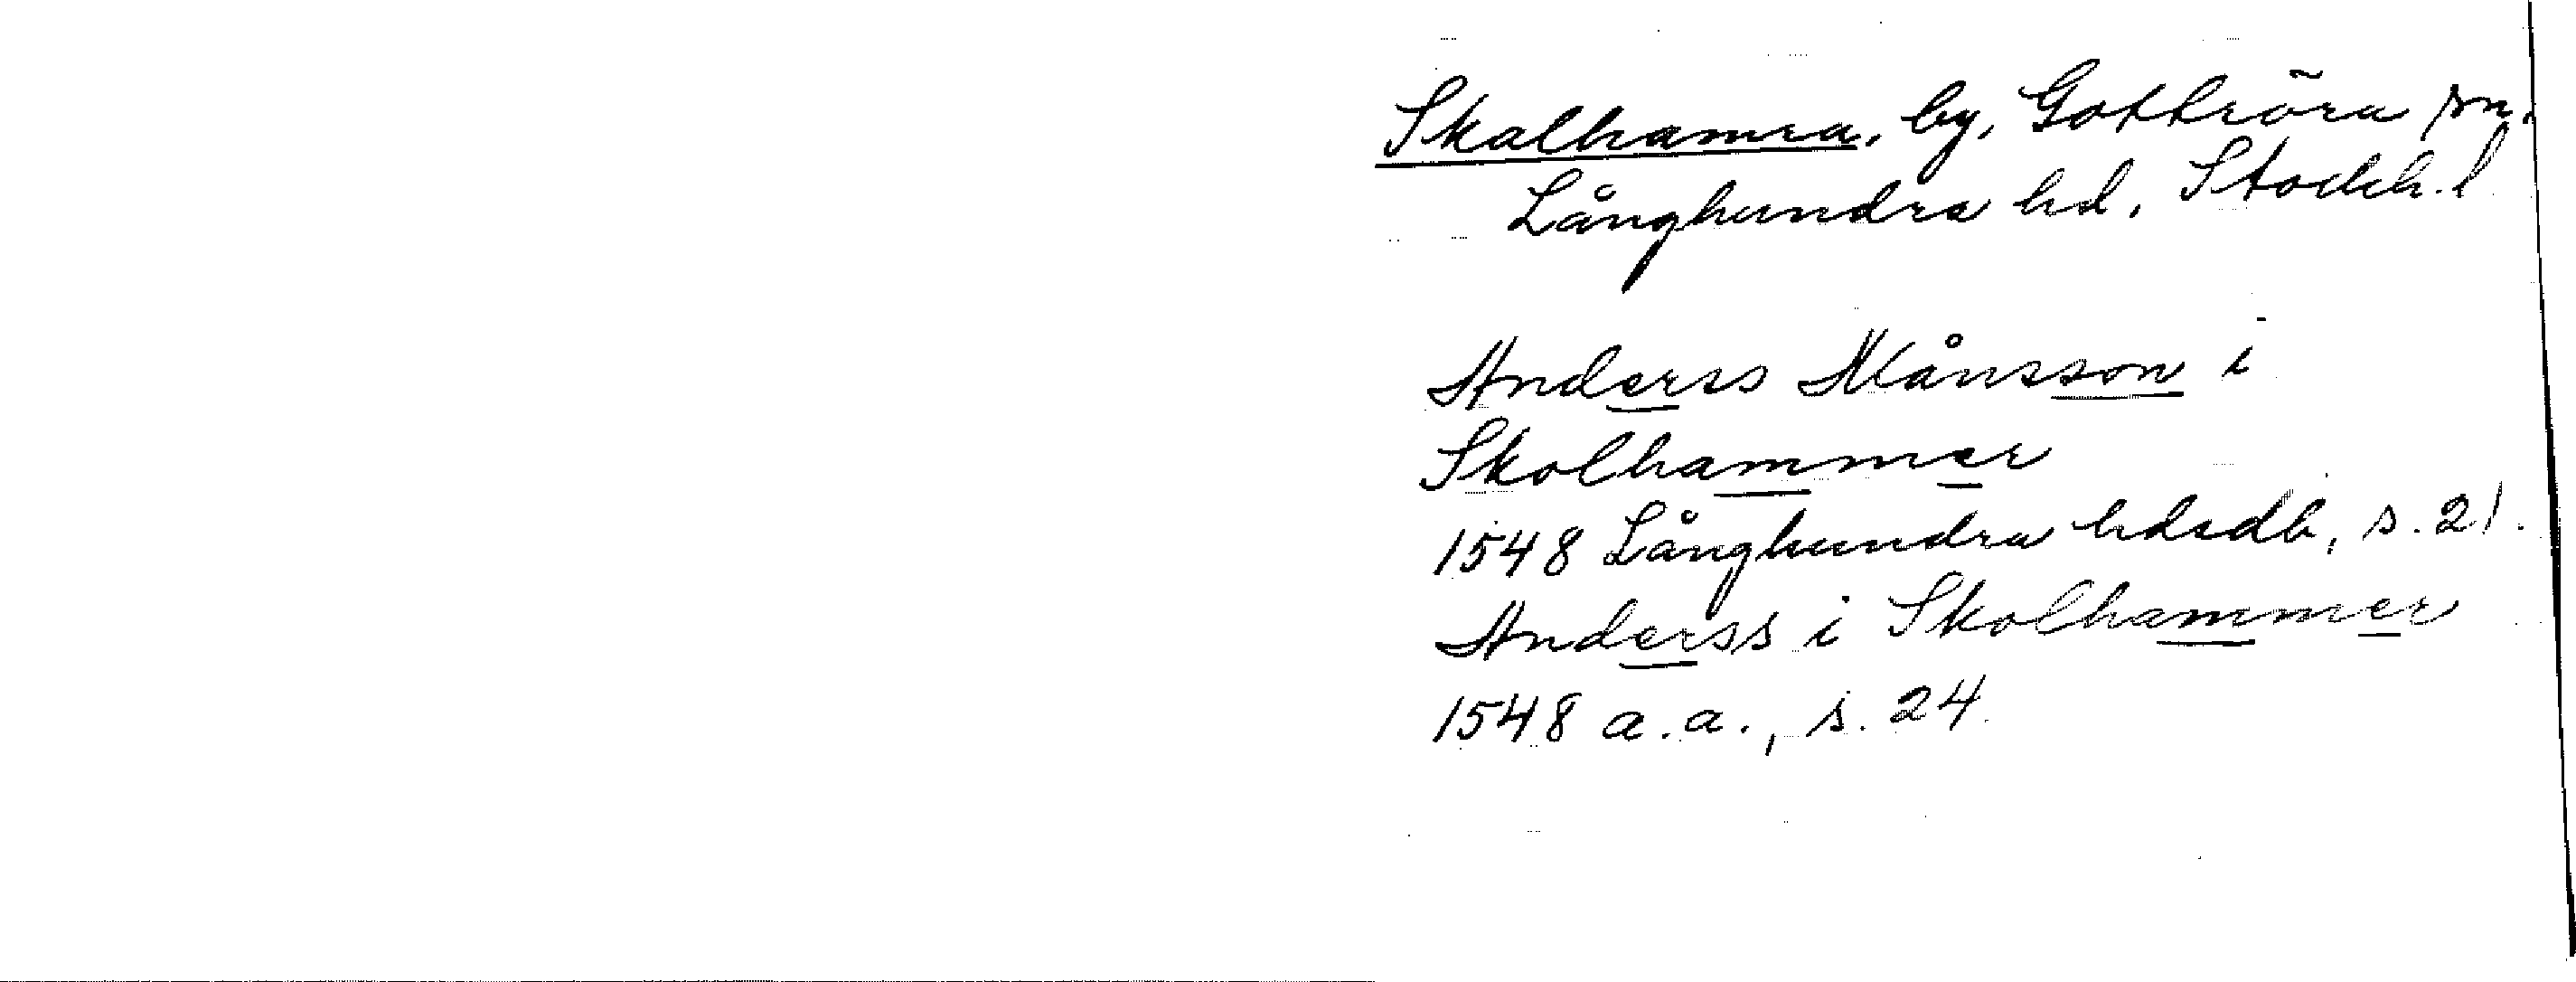 Skalhamra, by, Gottröra sn.
Långhundra hd, Stockh. l
Anderss Månsson i
Skolhammer
1548 Långhundra hdsdb, s. 21.
Anderss i Skolhammer
1548 a.a., s. 24.